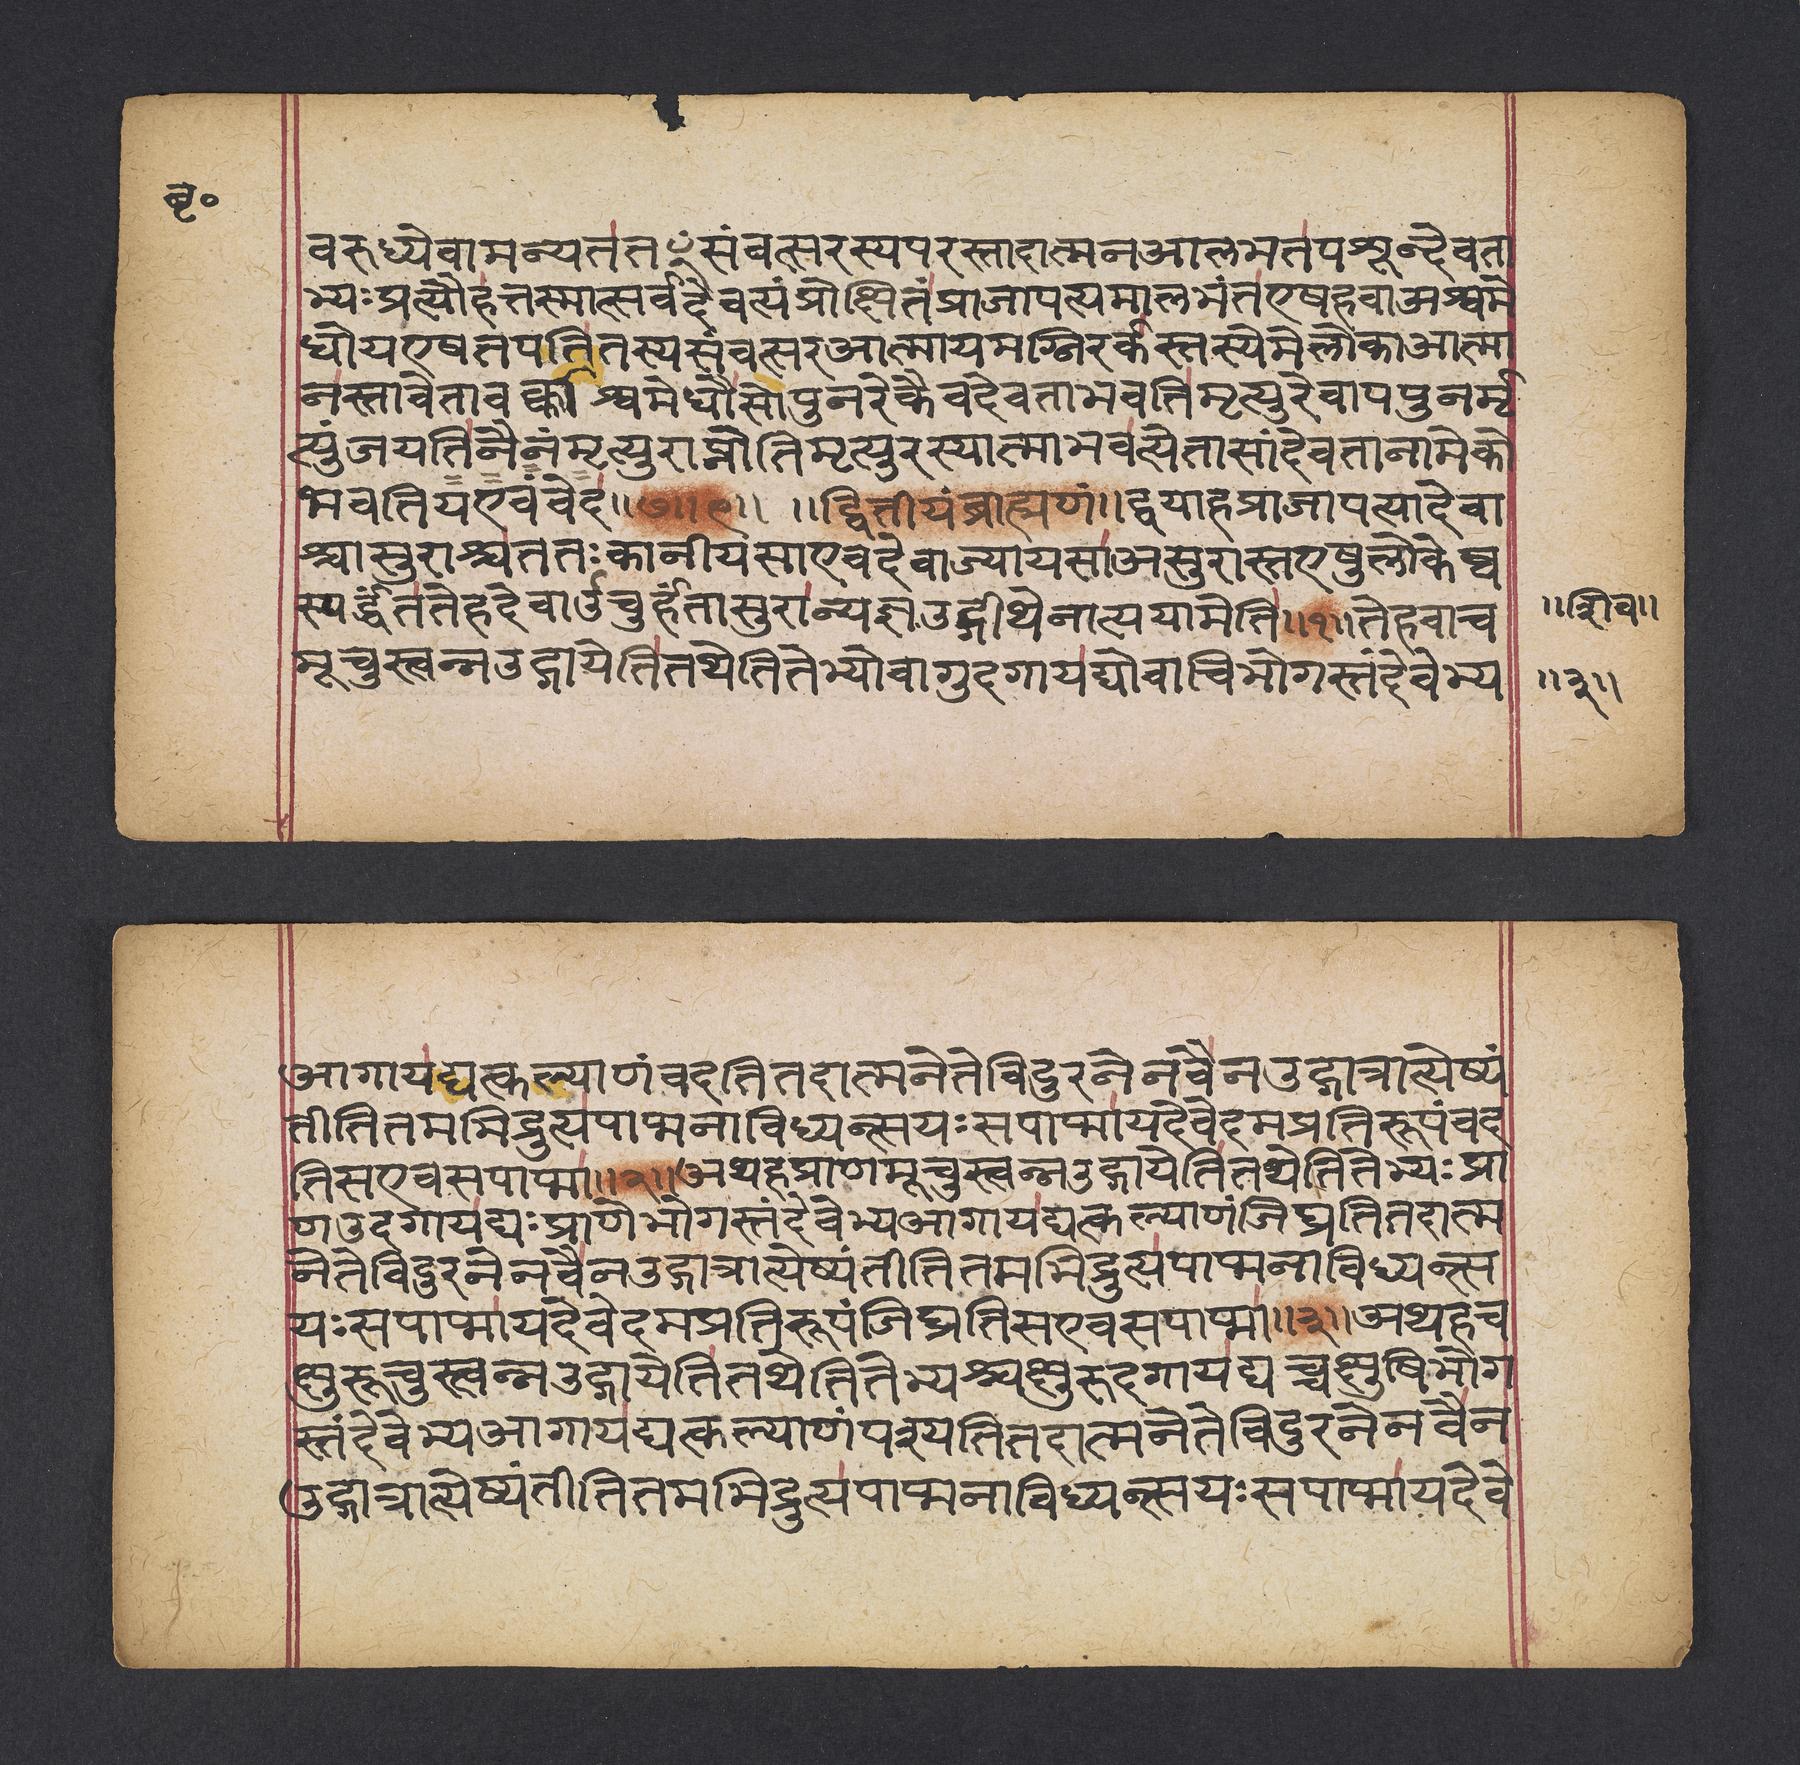 बृ०
वरुध्यैवामन्यततꣳसंवत्सरस्यपरस्तादात्मनआलभतपशून्देवता
भ्यःप्रत्यौहत्तस्मात्सर्वदैवत्यंप्रोक्षितंप्राजापत्यमालभंतएषहवाअश्वमे
धोयएषतपतितस्यसंवत्सरआत्मायमग्निरर्कस्तस्येमेलोकाआत्मा
नस्तावेतावर्क्काश्वमेधौसोपुनरेकैवदेवताभवतिमृत्युरेवापपुनर्मृ
त्युंजयतिनैनंमृत्युराप्नोतिमृत्युरस्यात्माभवत्येतासांदेवतानामेको
भवतियएवंवेद॥७॥९॥ ॥द्वितीयंब्राह्मणं॥द्वयाहप्राजापत्यादेवा
श्चासुराश्चततःकानीयसाएवदेवाज्यायसाअसुरास्तएषुलोकेष्व
स्पर्द्धंततेहदेवाऊचुर्हंतासुरान्यज्ञउद्गीथेनात्ययामेति॥१॥तेहवाच
॥शिव॥
मूचुस्त्वन्नउद्गायेतितथेतितेभ्योवागुदगायद्योवाचिभोगस्तंदेवेभ्य
॥३॥
आगायद्यत्कल्याणंवदतितदात्मनेतेविदुरनेनवैनउद्गात्रात्येष्यं
तीतितमभिद्रुत्यपाप्मनाविध्यन्त्सयःसपाप्मायदेवेदमप्रतिरूपंवद
तिसएवसपाप्मा॥२॥अथहप्राणमूचुस्त्वन्नउद्गायेतितथेतितेभ्यःप्रा
णउदगायद्यःप्राणेभोगस्तंदेवेभ्यआगायद्यत्कल्याणंजिघ्रतितदात्म
नेतेविदुरनेनवैनउद्गात्रात्येष्यंतीतितमभिद्रुत्यपाप्मनाविध्यन्त्स
यःसपाप्मायदेवेदमप्रतिरूपंजिघ्रतिसएवसपाप्मा॥३॥अथहच
क्षुरूचुस्त्वन्नउद्गायेतितथेतितेभ्यश्चक्षुरुदगायद्यच्चक्षुषिभोग
स्तंदेवेभ्यआगायद्यत्कल्याणंपश्यतितदात्मनेतेविदुरनेनवैन
उद्गात्रात्येष्यंतीतितमभिद्रुत्यपाप्मनाविध्यन्त्सयःसपाप्मायदेवे